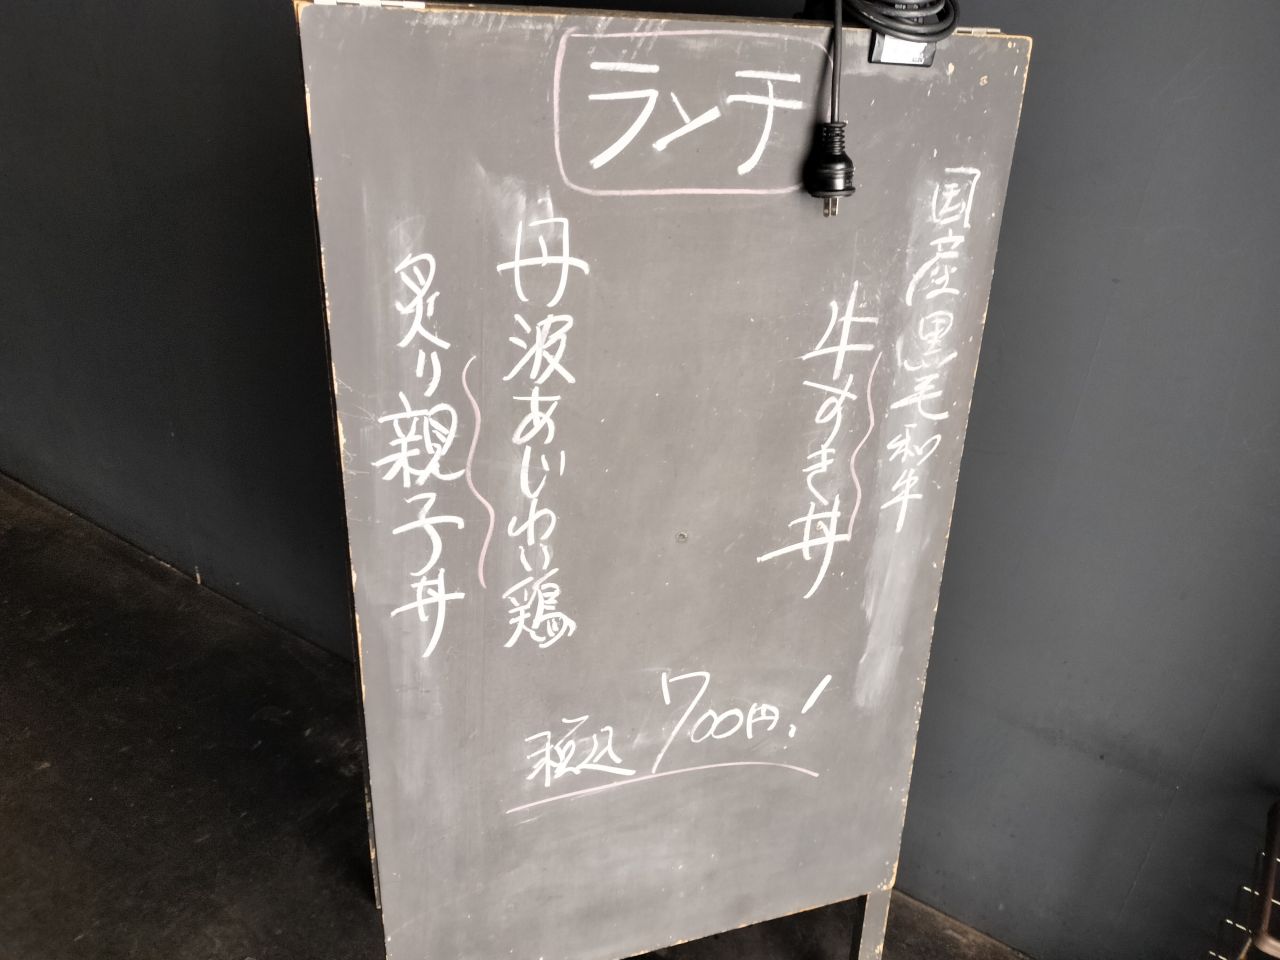 ランチ
国産黒毛和牛
牛すき丼
丹波あじわい鶏
炙り親子丼
税込 700円!